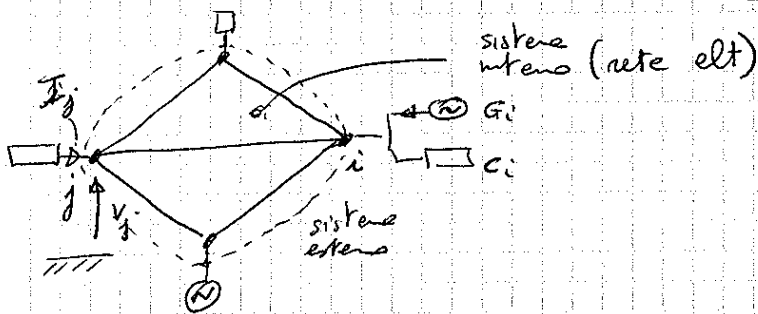 sistema
interno (rete elt)
I_j
G_i
i
C_i
j
V_j
sistema
esterno